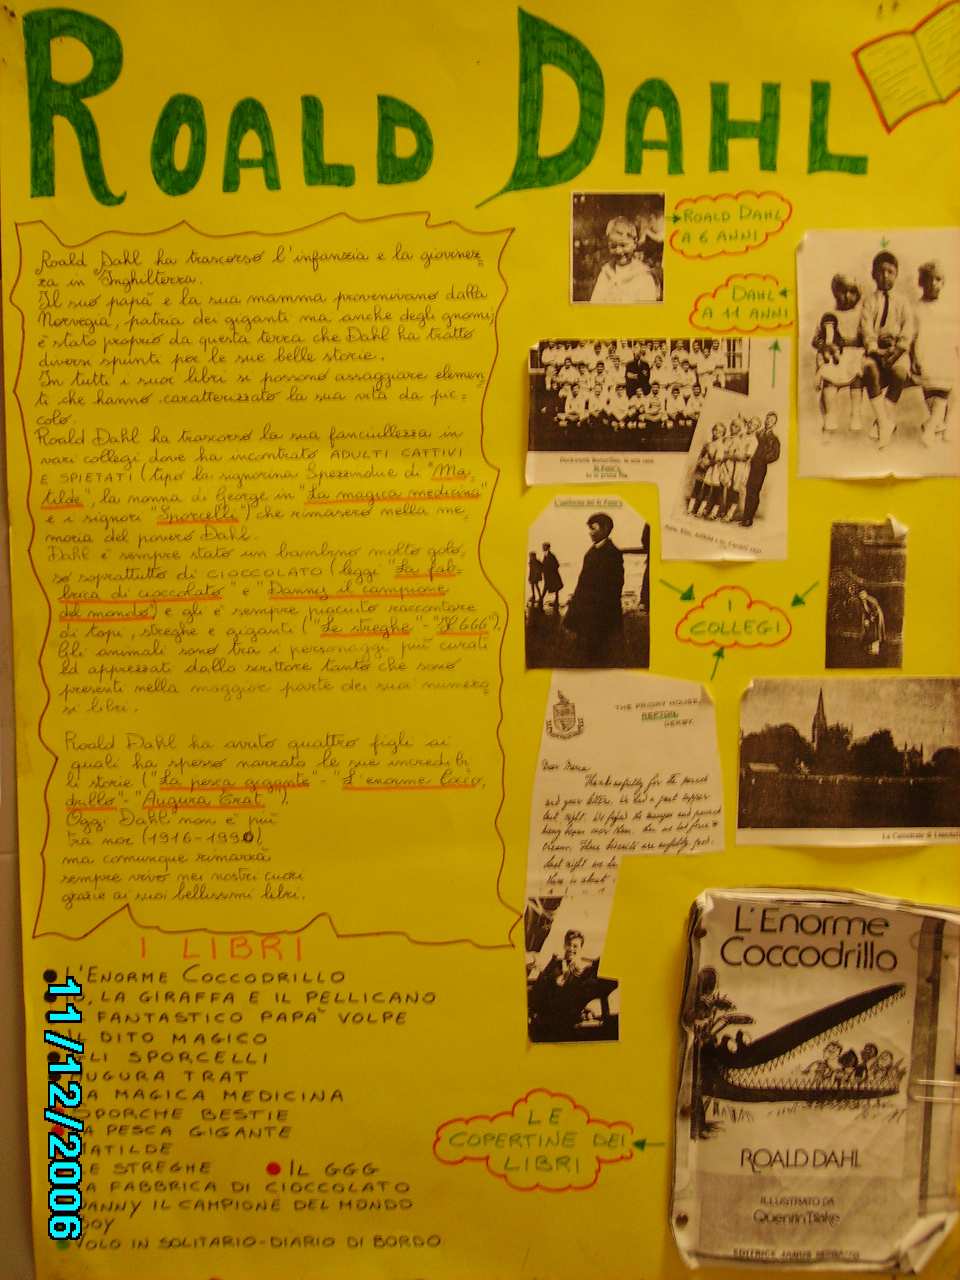 ROALD DAHL
Roald Dahl ha trascorso l'infanzia e la giovinez=
za in Inghilterra.
Il suo papà e la sua mamma provenivano dalla
Norvegia, patria dei giganti ma anche degli gnomi;
è stato proprio da questa terra che Dahl ha tratto
diversi spunti per le sue belle storie.
In tutti i suoi libri si possono assaggiare elemen=
ti che hanno caratterizzato la sua vita da pic=
colo.
Roald Dahl ha trascorso la sua fanciullezza in
vari collegi dove ha incontrato ADULTI CATTIVI
E SPIETATI (tipo la signorina Spezzindue di "Ma=
tilde", la nonna di George in "La magica medicina"
e i signori "Sporcelli") che rimasero nella me=
moria del povero Dahl.
Dahl è sempre stato un bambino molto golo=
so soprattutto di CIOCCOLATO (leggi "La fab=
brica di cioccolato" e "Danny il campione
del mondo) e gli è sempre piaciuto raccontare
di topi, streghe e giganti ("Le streghe"-"Il GGG").
Gli animali sono tra i personaggi più curati
ed apprezzati dallo scrittore tanto che sono
presenti nella maggior parte dei suoi numero=
si libri.
Roald Dahl ha avuto quattro figli ai
quali ha spesso narrato le sue incredibi
li storie ("La pesca gigante" - "L'enorme Cocco=
drillo" - "Augura Trat").
Oggi Dahl non è più
tra noi (1916-1990),
ma comunque rimarrà
sempre vivo nei nostri cuori
grazie ai suoi bellissimi libri.
ROALD DAHL
A 6 ANNI
DAHL
A 11 ANNI
I
COLLEGI
THE PRIORY HOUSE
REPTON
DERBY
Dear Mama
Thanks awfully for the parcel
and your letters. We had a great supper
last night.
I LIBRI
L'ENORME COCCODRILLO
, LA GIRAFFA E IL PELLICANO
FANTASTICO PAPÀ VOLPE
IL DITO MAGICO
GLI SPORCELLI
AUGURA TRAT
LA MAGICA MEDICINA
SPORCHE BESTIE
LA PESCA GIGANTE
MATILDE
LE STREGHE
IL GGG
LA FABBRICA DI CIOCCOLATO
DANNY IL CAMPIONE DEL MONDO
BOY
VOLO IN SOLITARIO-DIARIO DI BORDO
LE
COPERTINE DEI
LIBRI
L'Enorme
Coccodrillo
ROALD DAHL
ILLUSTRATO DA
Quentin Blake
11/12/2006